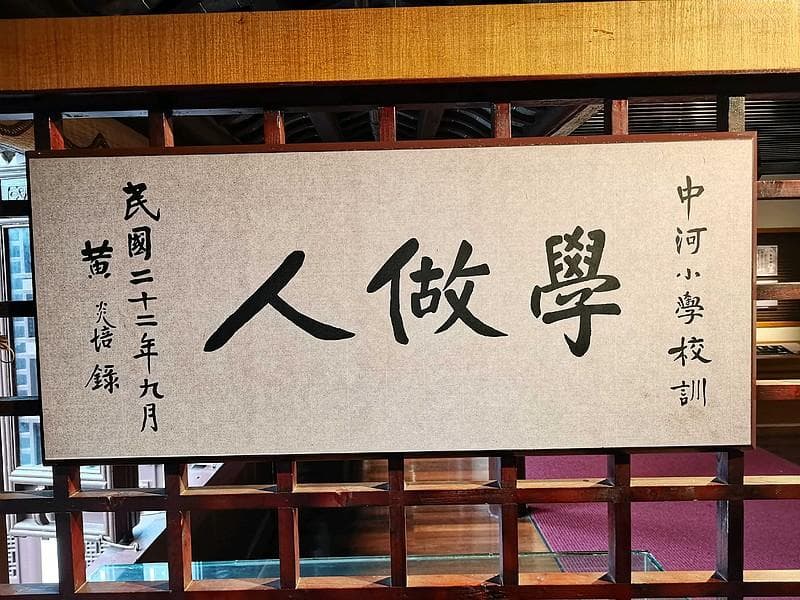 中河小學校訓
學做人
民國二十二年九月
黃炎培錄